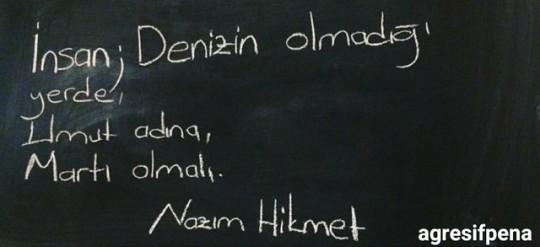 İnsan; Denizin olmadığı
yerde,
Umut adına,
Martı olmalı.
Nazım Hikmet
agresifpena